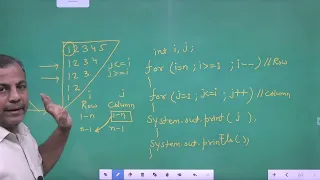 1 2 3 4 5
1 2 3 4
1 2 3
1 2
j<=i
j>=i
i j
Row Column
1-n 1-n
n-1 n-1
int i, j;
for (i=n; i>=1 ; i--) //Row
{
for (j=1; j<=i ; j++) //Column
{
System.out.print(j);
}
System.out.println();
}